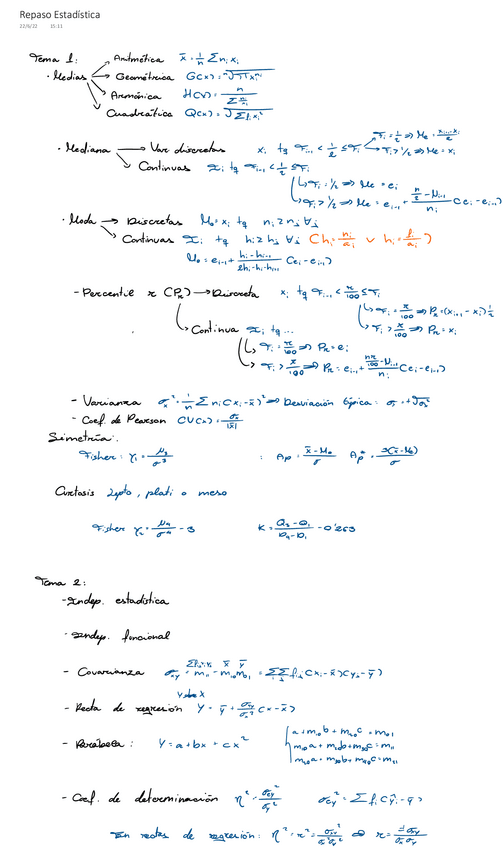 Repaso Estadística
22/6/22 15:11
Tema 1:
Aritmética x̄ = 1/n Σ nᵢ xᵢ
· Medias Geométrica G(x) = ⁿ√(Π xᵢⁿⁱ)
Armónica H(x) = n / Σ nᵢ/xᵢ
Cuadrática Q(x) = √(Σ fᵢ xᵢ²)
· Mediana → Var discretas xᵢ tq Fᵢ₋₁ < 1/2 ≤ Fᵢ
Fᵢ > 1/2 ⇒ Me = xᵢ
Continuas Iᵢ tq Fᵢ₋₁ < 1/2 ≤ Fᵢ
Fᵢ = 1/2 ⇒ Me = eᵢ
Fᵢ > 1/2 ⇒ Me = eᵢ₋₁ + (n/2 - Nᵢ₋₁)/nᵢ (eᵢ - eᵢ₋₁)
· Moda → Discretas Mo = xᵢ tq nᵢ ≥ nⱼ ∀j
Continuas Iᵢ tq hᵢ ≥ hⱼ ∀j (hᵢ = nᵢ/aᵢ ∨ hᵢ = fᵢ/aᵢ)
Mo = eᵢ₋₁ + (hᵢ - hᵢ₋₁)/(2hᵢ - hᵢ₋₁ - hᵢ₊₁) (eᵢ - eᵢ₋₁)
- Percentil r (Pr) → Discreta xᵢ tq Fᵢ₋₁ < r/100 ≤ Fᵢ
Fᵢ = r/100 ⇒ Pr = (xᵢ₊₁ - xᵢ) 1/2
Fᵢ > r/100 ⇒ Pr = xᵢ
Continua Iᵢ tq ...
Fᵢ = r/100 ⇒ Pr = eᵢ
Fᵢ > r/100 ⇒ Pr = eᵢ₋₁ + (nr/100 - Nᵢ₋₁)/nᵢ (eᵢ - eᵢ₋₁)
- Varianza σₓ² = 1/n Σ nᵢ (xᵢ - x̄)² ⇒ Desviación típica = σₓ = +√σₓ²
- Coef. de Pearson CV(x) = σₓ/|x̄|
Simetría:
Fisher: γ₁ = μ₃/σ³ : Ap = (x̄ - Mo)/σ Ap* = 3(x̄ - Me)/σ
Curtosis lepto, plati o meso
Fisher γ₂ = μ₄/σ⁴ - 3 K = (Q₃ - Q₁)/(D₉ - D₁) - 0'263
Tema 2:
- Indep. estadística
- Indep. funcional
- Covarianza σxy = m₁₁ - m₁₀m₀₁ = ΣΣ fᵢⱼ (xᵢ - x̄)(yⱼ - ȳ)
- Recta de regresión Y = ȳ + σxy/σₓ² (x - x̄)
- Parábola: Y = a + bx + cx²
a + m₁₀b + m₂₀c = m₀₁
m₁₀a + m₂₀b + m₃₀c = m₁₁
m₂₀a + m₃₀b + m₄₀c = m₂₁
- Coef. de determinación η² = σey²/σy² σey² = Σ fᵢ (ŷᵢ - ȳ)
En rectas de regresión: η² = r² = σxy²/σₓ²σy² ⇒ r = ±σxy/σₓσy